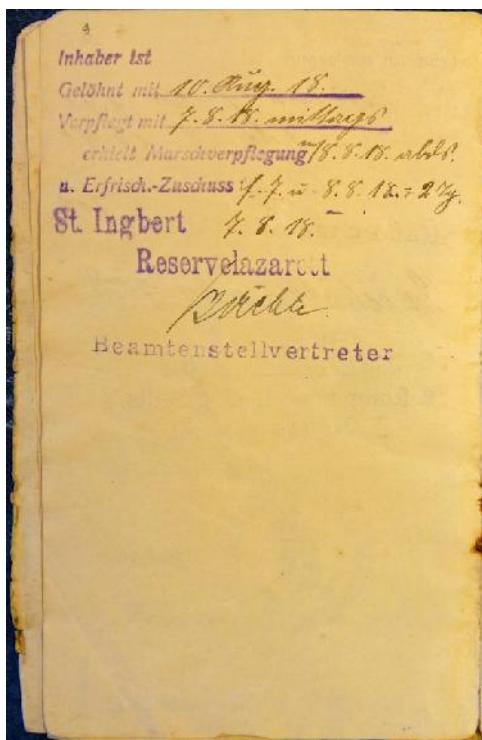 9
Inhaber ist
Gelöhnt mit 10. Aug. 18.
Verpflegt mit 7.8.18. mittags
erhielt Marschverpflegung 8.8.18. abds.
u. Erfrisch.-Zuschuss f. 7. u. 8.8.18. = 2 Tg.
St. Ingbert 7.8.18.
Reservelazarett
Beamtenstellvertreter